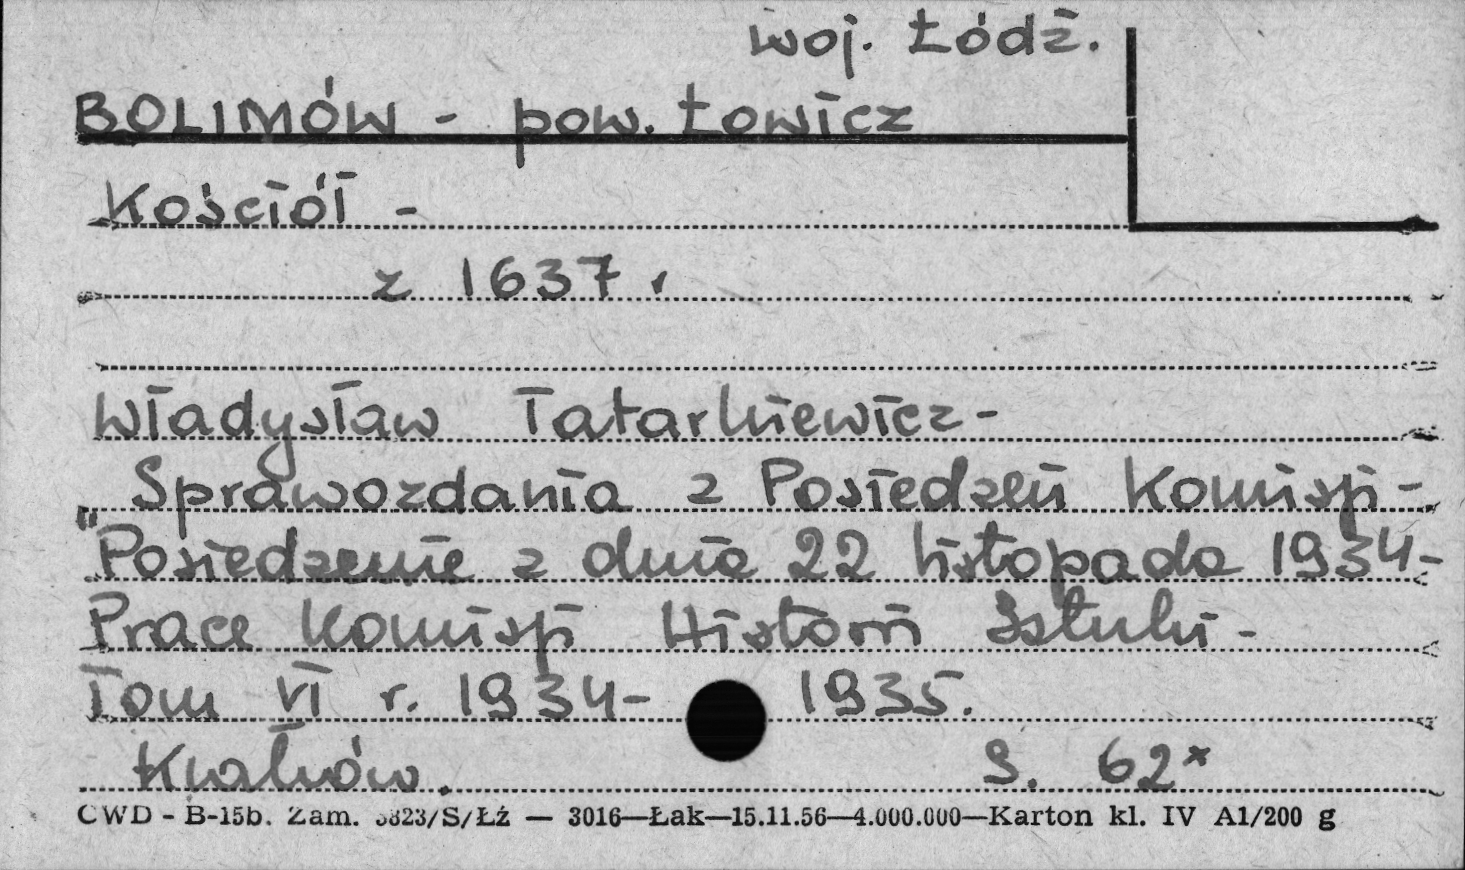 woj. Łódź.
BOLIMÓW - pow. Łowicz
Kościół -
z 1637 r
Władysław Tatarkiewicz -
Sprawozdania z Posiedzeń Komisji -
"Posiedzenie z dnia 22 listopada 1934 -
Prace Komisji Historii Sztuki -
Tom VI r. 1934 - 1935.
Kraków. S. 62*
CWD - B-15b. Zam. 5823/S/Łź — 3016—Łak—15.11.56—4.000.000—Karton kl. IV A1/200 g